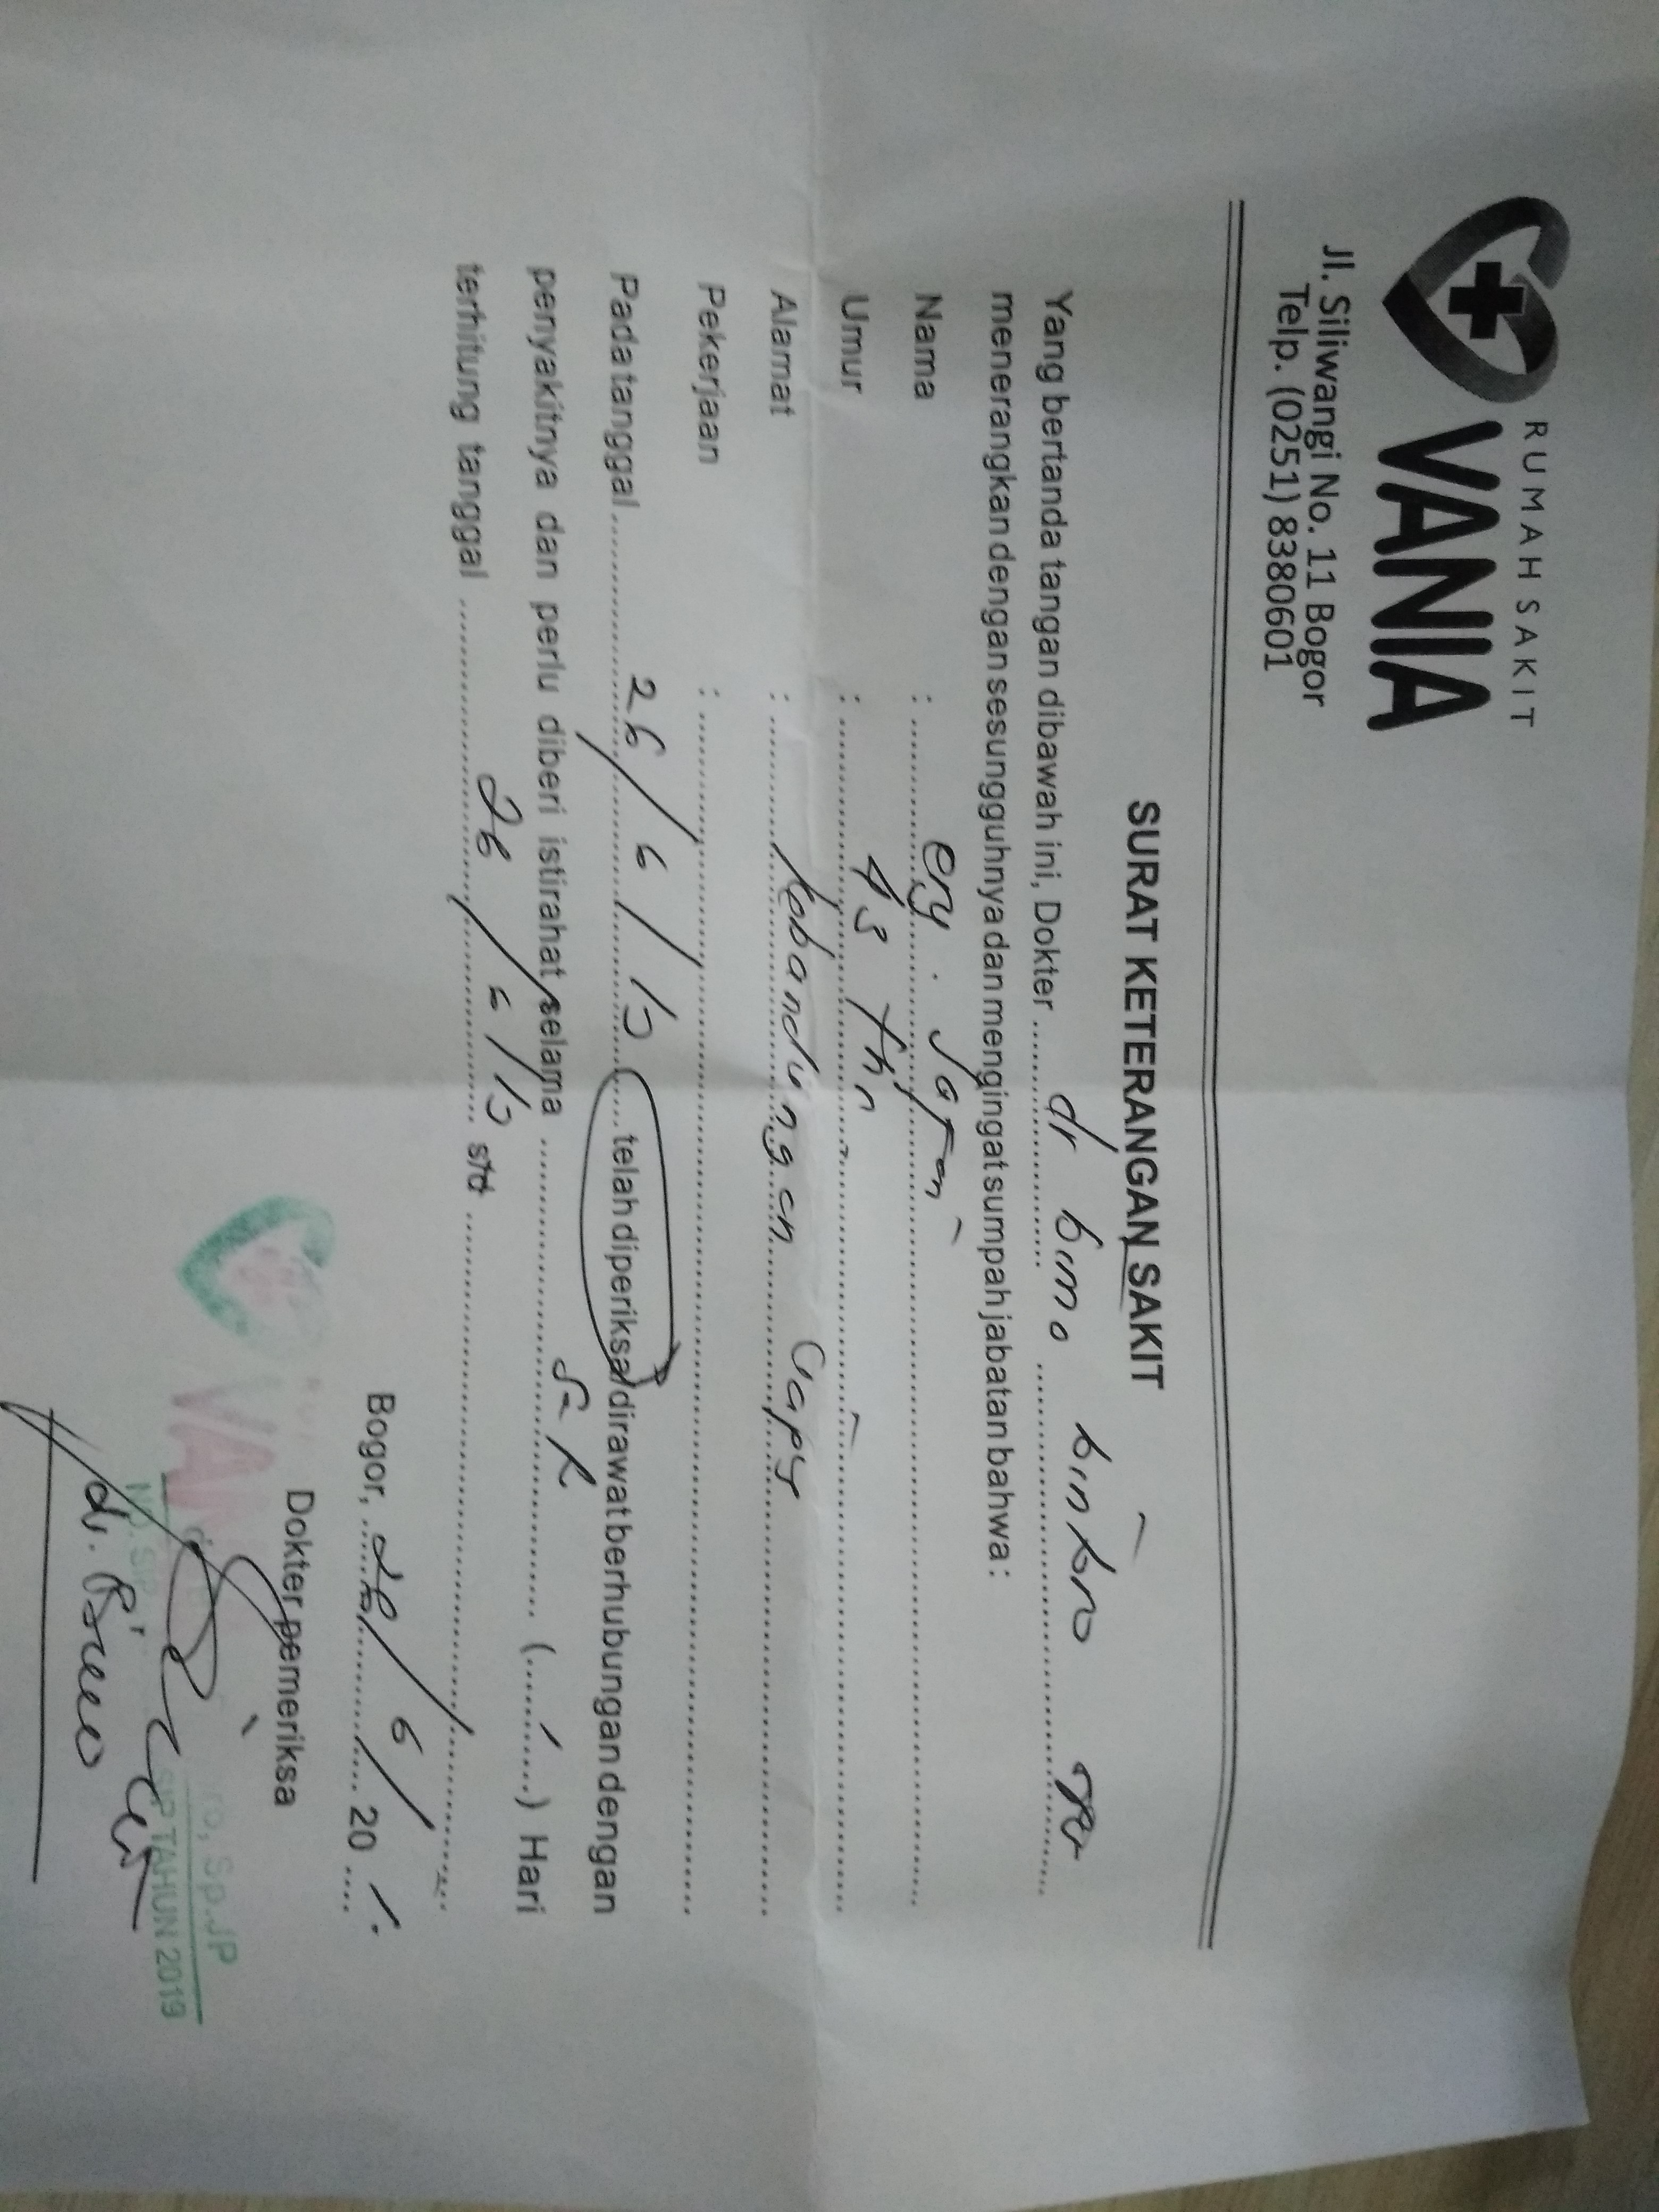 RUMAH SAKIT
VANIA
Jl. Siliwangi No. 11 Bogor
Telp. (0251) 8380601
SURAT KETERANGAN SAKIT
Yang bertanda tangan dibawah ini, Dokter dr bimo
menerangkan dengan sesungguhnya dan mengingat sumpah jabatan bahwa :
Nama : eny.
Umur : 43 thn
Alamat : kebandungan
Pekerjaan :
Pada tanggal 26/6/ telah diperiksa/dirawat berhubungan dengan
penyakitnya dan perlu diberi istirahat selama (......) Hari
terhitung tanggal 26/6/ s/d
Bogor, 26/6/ 20
Dokter pemeriksa
VANIA
Sp.JP
NO. SIP
SIP TAHUN 2019
dr.